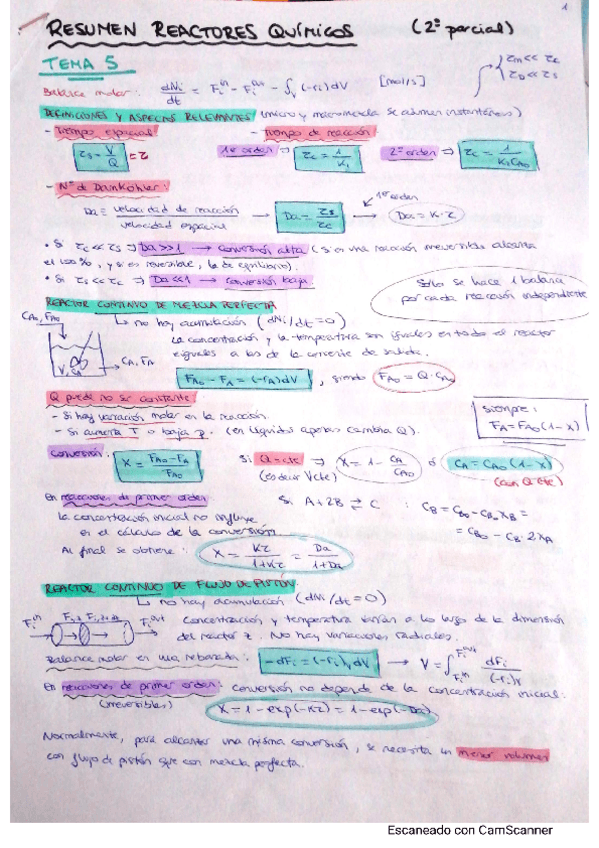 1
RESUMEN REACTORES QUÍMICOS (2º parcial)
TEMA 5
τm << τc
τD << τs
Balance molar: dNi/dt = Fi^in - Fi^out - ∫v (-ri) dV [mol/s]
DEFINICIONES Y ASPECTOS RELEVANTES (micro y macromezcla se asumen instantáneos)
- Tiempo espacial - Tiempo de reacción:
τs = V/Q = τ 1er orden ⇒ τc = 1/K1 2º orden ⇒ τc = 1/K1CA0
- Nº de Damköhler:
1er orden
Da = velocidad de reacción/velocidad espacial → Da = τs/τc → Da = K·τ
• Si τc << τs ⇒ Da >> 1 → conversión alta (si es una reacción irreversible alcanza
el 100%, y si es reversible, la de equilibrio).
• Si τs << τc ⇒ Da << 1 → conversión baja.
Solo se hace 1 balance
por cada reacción independiente
REACTOR CONTINUO DE MEZCLA PERFECTA
CA0, FA0 ↳ no hay acumulación (dNi/dt = 0)
La concentración y la temperatura son iguales en todo el reactor
e iguales a las de la corriente de salida.
V, CA CA, FA
FA0 - FA = (-rA)dV, siendo FA0 = Q·CA0
Q puede no ser constante:
- Si hay variación molar en la reacción.
- Si aumenta T o baja p. (en líquidos apenas cambia Q).
siempre:
FA = FA0(1-x)
Conversión: X = FA0-FA/FA0 Si Q = cte ⇒ X = 1 - CA/CA0 ó CA = CA0(1-x)
(es decir V cte) (con Q cte)
En reacciones de primer orden
la concentración inicial no influye
en el cálculo de la conversión.
Si A + 2B ⇌ C : CB = CB0 - CB0 XB =
= CB0 - CB·2XA
Al final se obtiene: X = Kτ/1+Kτ = Da/1+Da
REACTOR CONTINUO DE FLUJO DE PISTÓN.
↳ no hay acumulación (dNi/dt = 0)
Fi^in Fi,z Fi,z+dz Fi^out Concentración y temperatura varían a lo largo de la dimensión
del reactor z. No hay variaciones radiales.
Balance molar en una rebanada: -dFi = (-ri)v dV → V = ∫Fi^in^Fi^out dFi/(-ri)v
En reacciones de primer orden: conversión no depende de la concentración inicial:
(irreversibles) X = 1 - exp(-Kτ) = 1 - exp(-Da)
Normalmente, para alcanzar una misma conversión, se necesita un menor volumen
con flujo de pistón que con mezcla perfecta.
Escaneado con CamScanner